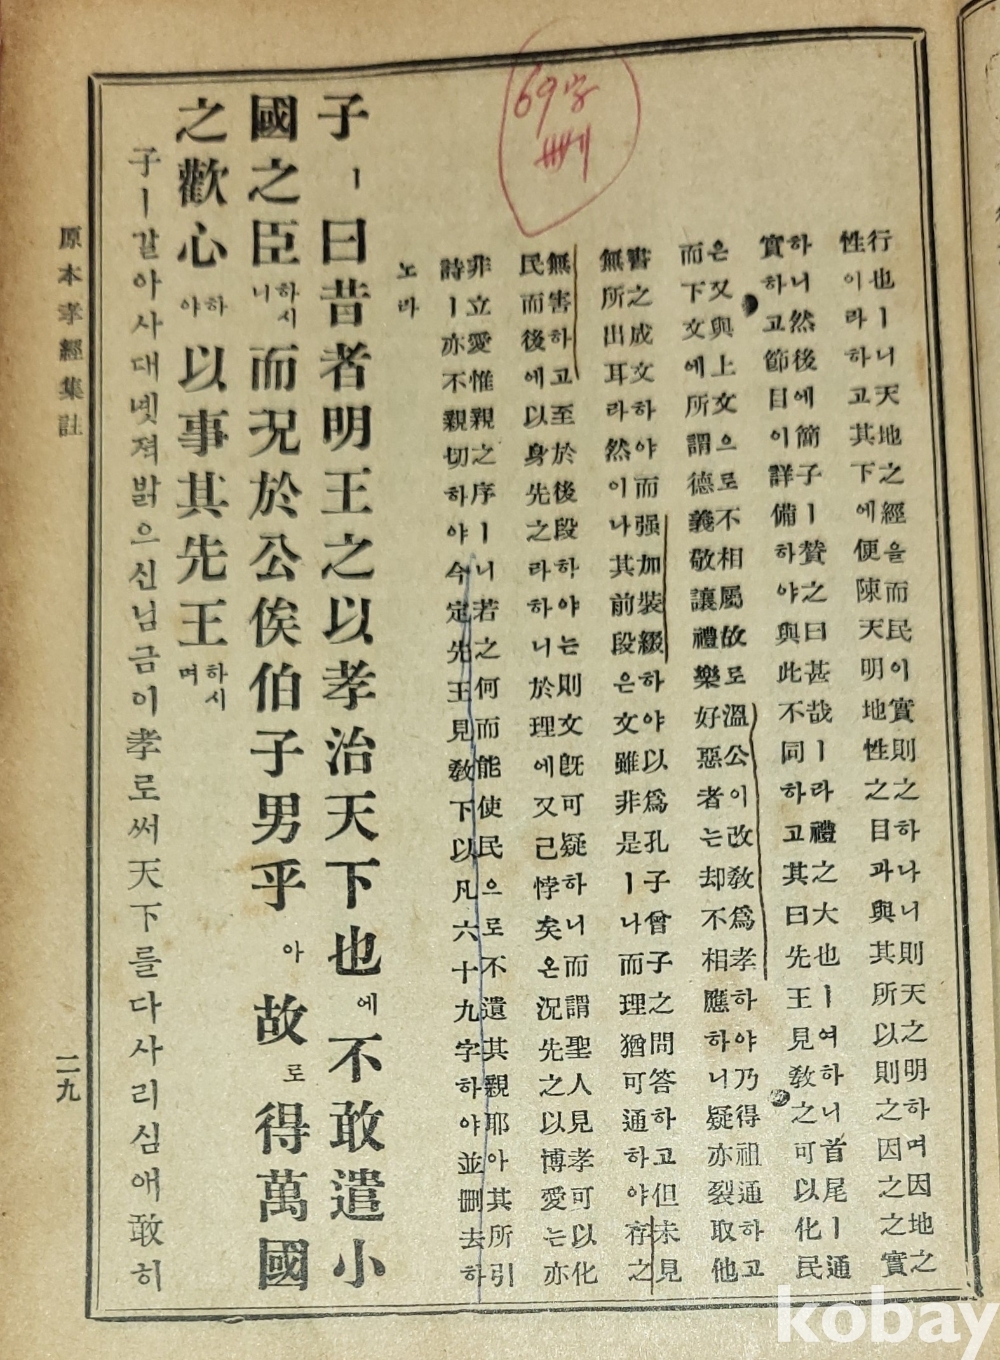 69字
刪
行也ㅣ니天地之經을而民이實則之하나니則天之明하며因地之
性이라하고其下에便陳天明地性之目과與其所以則之因之之實
하니然後에簡子ㅣ贊之曰甚哉ㅣ라禮之大也ㅣ여하니首尾ㅣ通
實하고節目이詳備하야與此不同하고其曰先王見敎之可以化民
은又與上文으로不相屬故로溫公이改敎爲孝하야乃得祖通하고
而下文에所謂德義敬讓禮樂好惡者는却不相應하니疑亦裂取他
書之成文하야而强加裝綴하야以爲孔子曾子之問答하고但未見
無所出耳라然이나其前段은文雖非是ㅣ나而理猶可通하야存之
無害하고至於後段하야는則文旣可疑하니而謂聖人見孝可以化
民而後에以身先之라하니於理에又己悖矣온況先之以博愛는亦
非立愛惟親之序ㅣ니若之何而能使民으로不遺其親耶아其所引
詩ㅣ亦不親切하야今定先王見敎下以凡六十九字하야並刪去하
노라
子ㅣ曰昔者明王之以孝治天下也에不敢遣小
國之臣하시니而況於公侯伯子男乎아故로得萬國
之歡心하야以事其先王하시며
子ㅣ갈아사대녯져밝으신님금이孝로써天下를다사리심애敢히
原本孝經集註
二九
kobay